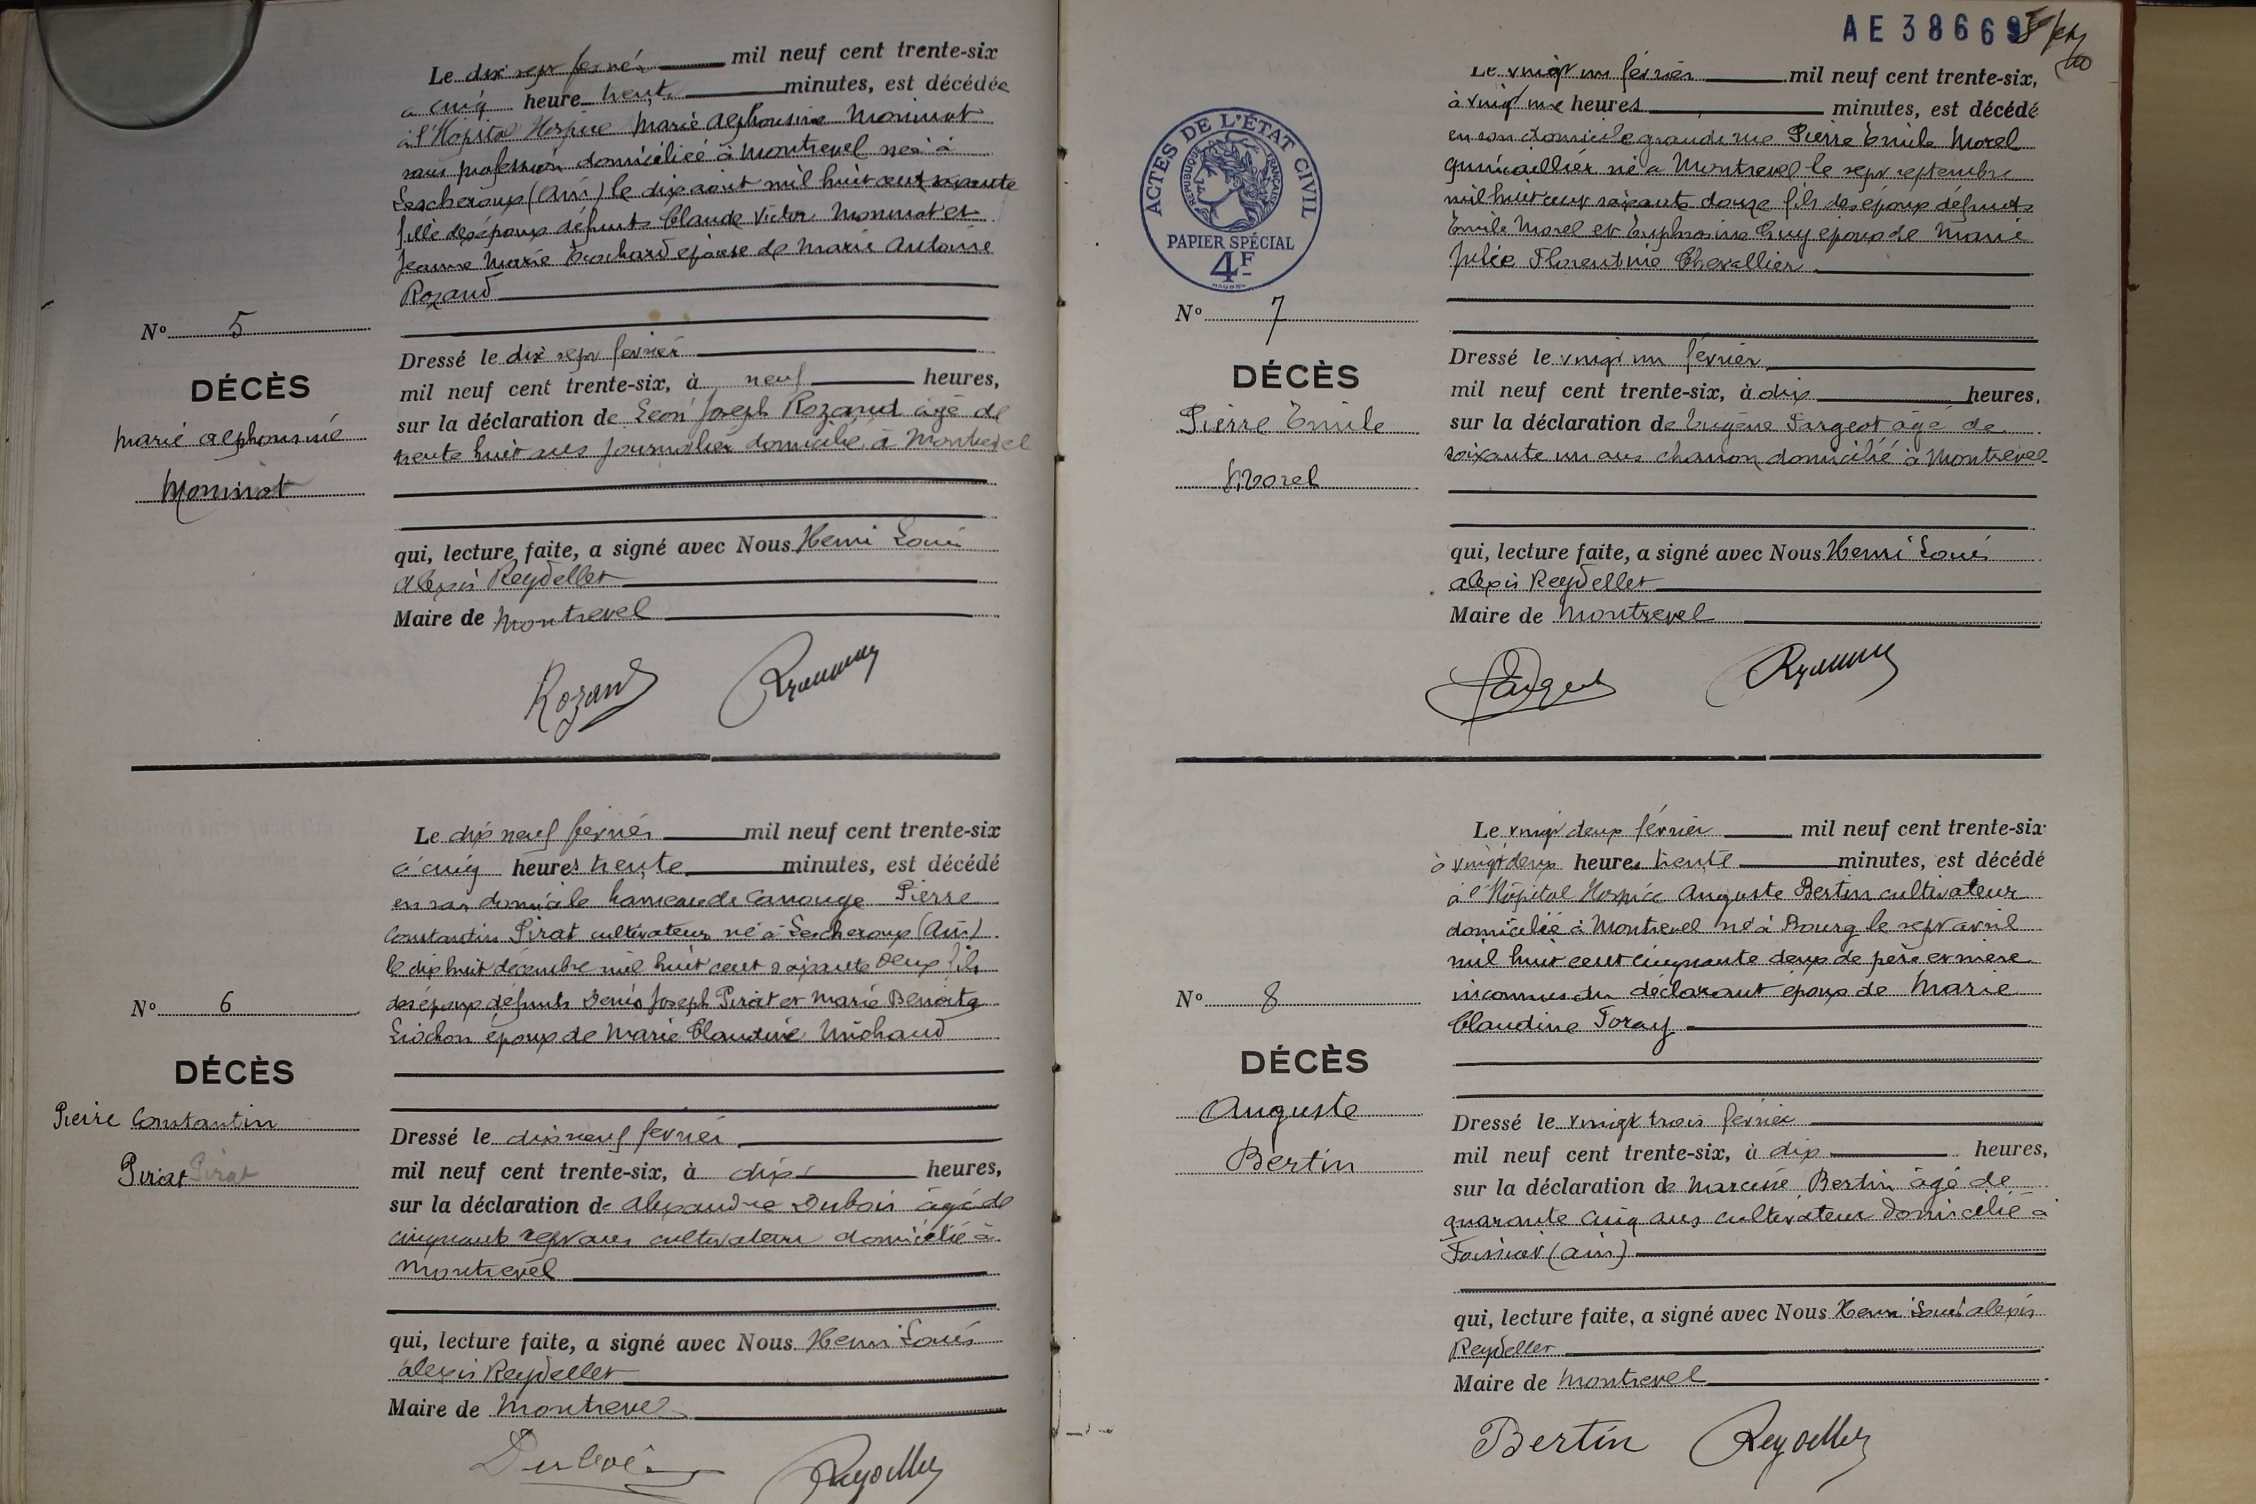 Le dix sept février mil neuf cent trente-six
à cinq heure trente minutes, est décédée
à l'Hôpital Hospice Marie Alphonsine Moninot
sans profession domiciliée à Montrevel née à
Lescheroux (Ain) le dix août mil huit cent soixante
fille des époux défunts Claude Victor Moninot et
Jeanne Marie Brochard épouse de Marie Antoine
Rozand
N° 5
DÉCÈS
Marie Alphonsine
Moninot
Dressé le dix sept février
mil neuf cent trente-six, à neuf heures,
sur la déclaration de Léon Joseph Rozand âgé de
trente huit ans journalier domicilié à Montrevel
qui, lecture faite, a signé avec Nous Henri Louis
Alexis Reydellet
Maire de Montrevel
Rozand
Le dix neuf février mil neuf cent trente-six
à cinq heures trente minutes, est décédé
en son domicile hameau de Canouge Pierre
Constantin Pirat cultivateur né à Lescheroux (Ain)
le dix huit décembre mil huit cent soixante deux fils
des époux défunts Denis Joseph Pirat et Marie Benoite
Liochon époux de Marie Claudine Michaud
N° 6
DÉCÈS
Pierre Constantin
Pirat Pirat
Dressé le dix neuf février
mil neuf cent trente-six, à dix heures,
sur la déclaration de Alexandre Dubois âgé de
cinquante sept ans cultivateur domicilié à
Montrevel
qui, lecture faite, a signé avec Nous Henri Louis
Alexis Reydellet
Maire de Montrevel
Dubois Reydellet
AE 38669
ACTES DE L'ÉTAT CIVIL
RÉPUBLIQUE FRANÇAISE
PAPIER SPÉCIAL
4F
Le vingt un février mil neuf cent trente-six,
à vingt une heures minutes, est décédé
en son domicile grande rue Pierre Emile Morel
quincaillier né à Montrevel le sept septembre
mil huit cent soixante douze fils des époux défunts
Emile Morel et Euphrosine Guy époux de Marie
Julie Florentine Chevallier
N° 7
DÉCÈS
Pierre Emile
Morel
Dressé le vingt un février
mil neuf cent trente-six, à dix heures,
sur la déclaration de Eugène Fargeot âgé de
soixante un ans charron domicilié à Montrevel
qui, lecture faite, a signé avec Nous Henri Louis
Alexis Reydellet
Maire de Montrevel
Le vingt deux février mil neuf cent trente-six
à vingt deux heures trente minutes, est décédé
à l'Hôpital Hospice Auguste Bertin cultivateur
domicilié à Montrevel né à Bourg le sept avril
mil huit cent cinquante deux de père et mère
inconnus du déclarant époux de Marie
Claudine Foray
N° 8
DÉCÈS
Auguste
Bertin
Dressé le vingt trois février
mil neuf cent trente-six, à dix heures,
sur la déclaration de Bertin âgé de
quarante cinq ans cultivateur domicilié à
Foissiat (Ain)
qui, lecture faite, a signé avec Nous Henri Louis Alexis
Reydellet
Maire de Montrevel
Bertin Reydellet